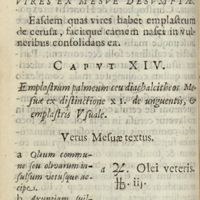 VIRES EX MESVE DESVMPTÆ.
Easdem quas vires habet emplastrum
de cerusa, facitque carnem nasci in vul-
neribus consolidans ea.
CAPVT XIV.
Emplastrum palmeum ceu diachalciteos Me-
suæ ex distinctione XI. de unguentis, &
emplastris Vsuale.
Verus Mesuæ textus.
a Oleum commu-
ne seu olivarum in-
sulsum vetusque ac-
cipe.
b Axungiam suil-
a ℞. Olei veteris.
lb. iij.